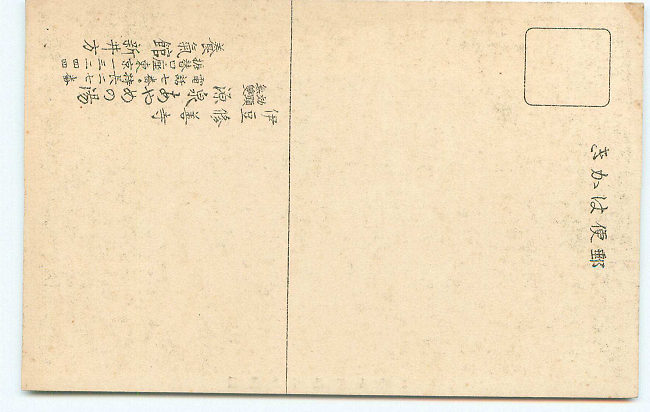 郵便はかき
伊豆修善寺
源泉あやめの湯
電話七番・特長二七番
振替口座東京一三二四四
養氣館新井方